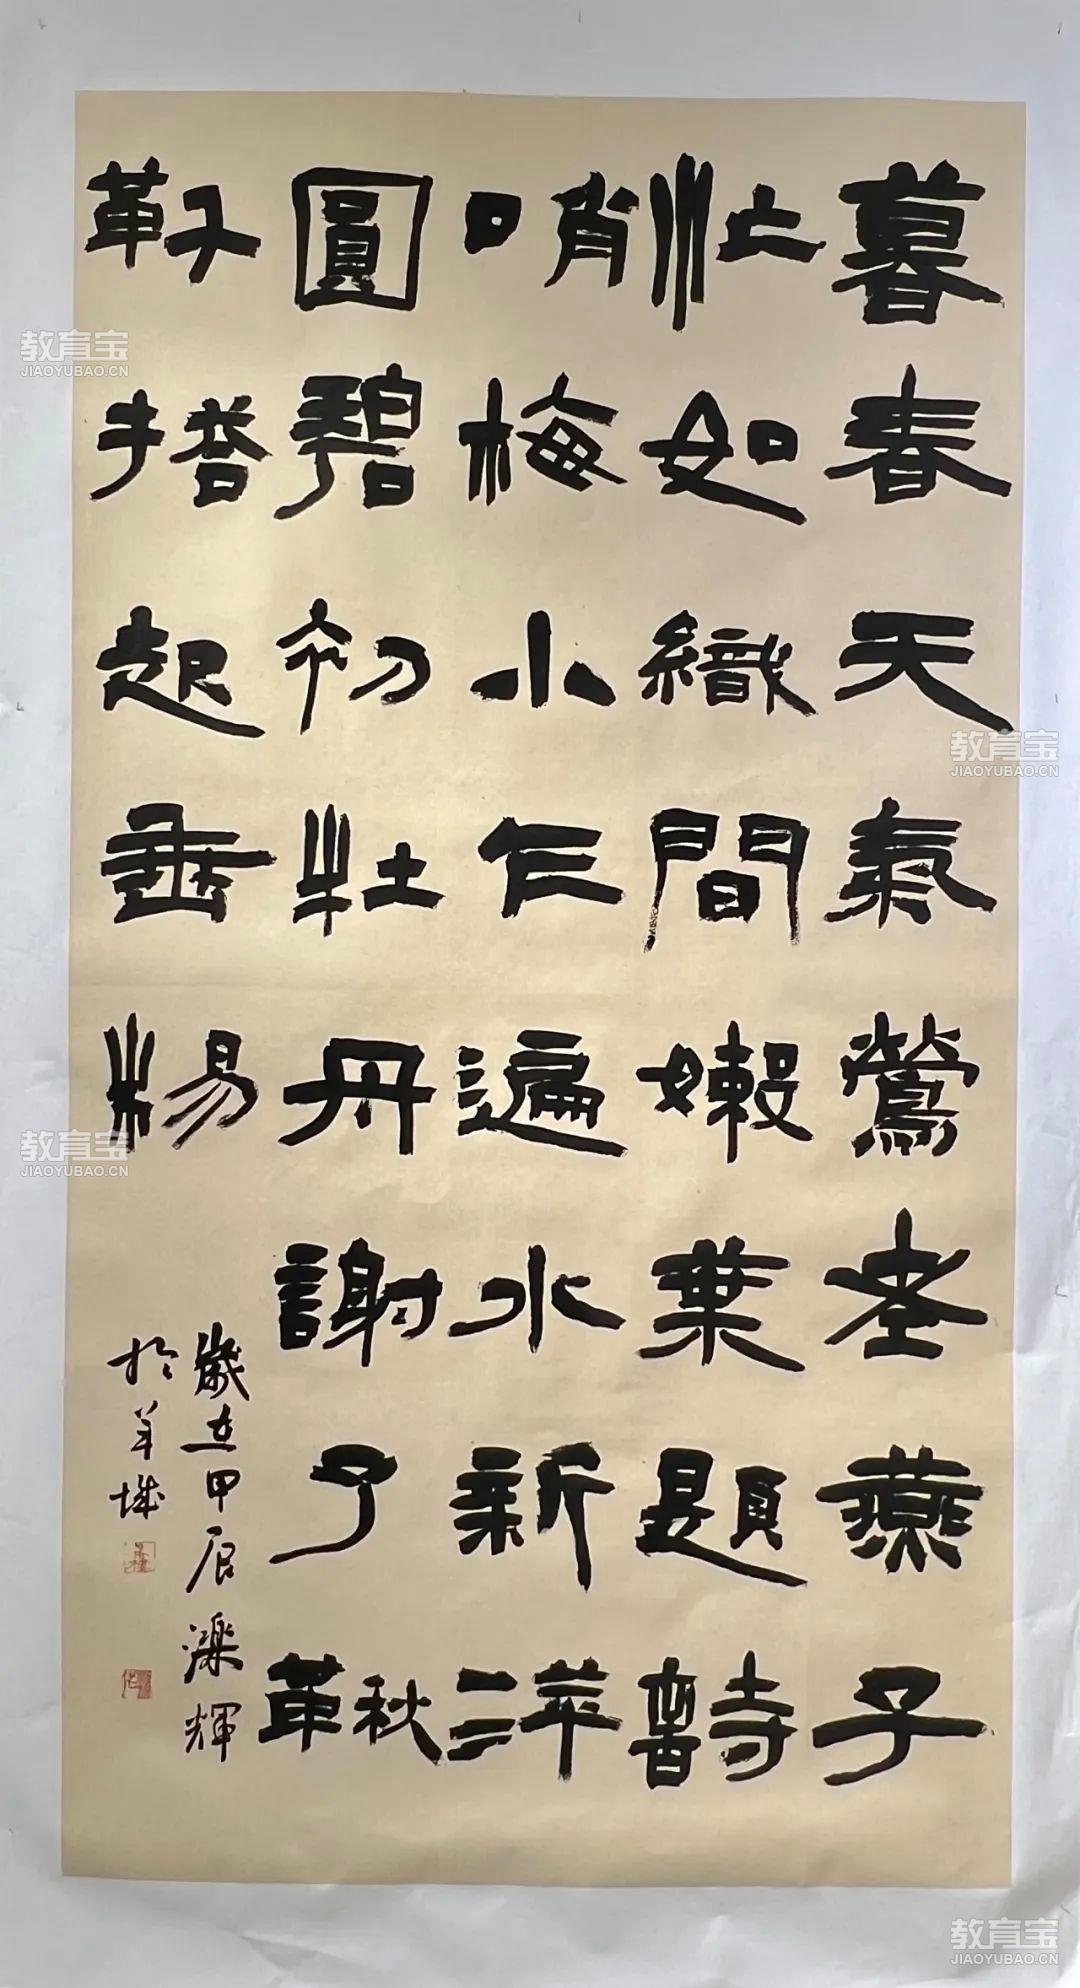 暮春天氣鶯老燕子
忙如織間嫩葉題詩
哨梅小乍遍水新萍
圓碧初牡丹謝了鞦
靬搭起垂楊
歲在甲辰濼輝
於羊城
教育宝
JIAOYUBAO.CN
教育宝
JIAOYUBAO.CN
教育宝
JIAOYUBAO.CN
教育宝
JIAOYUBAO.CN